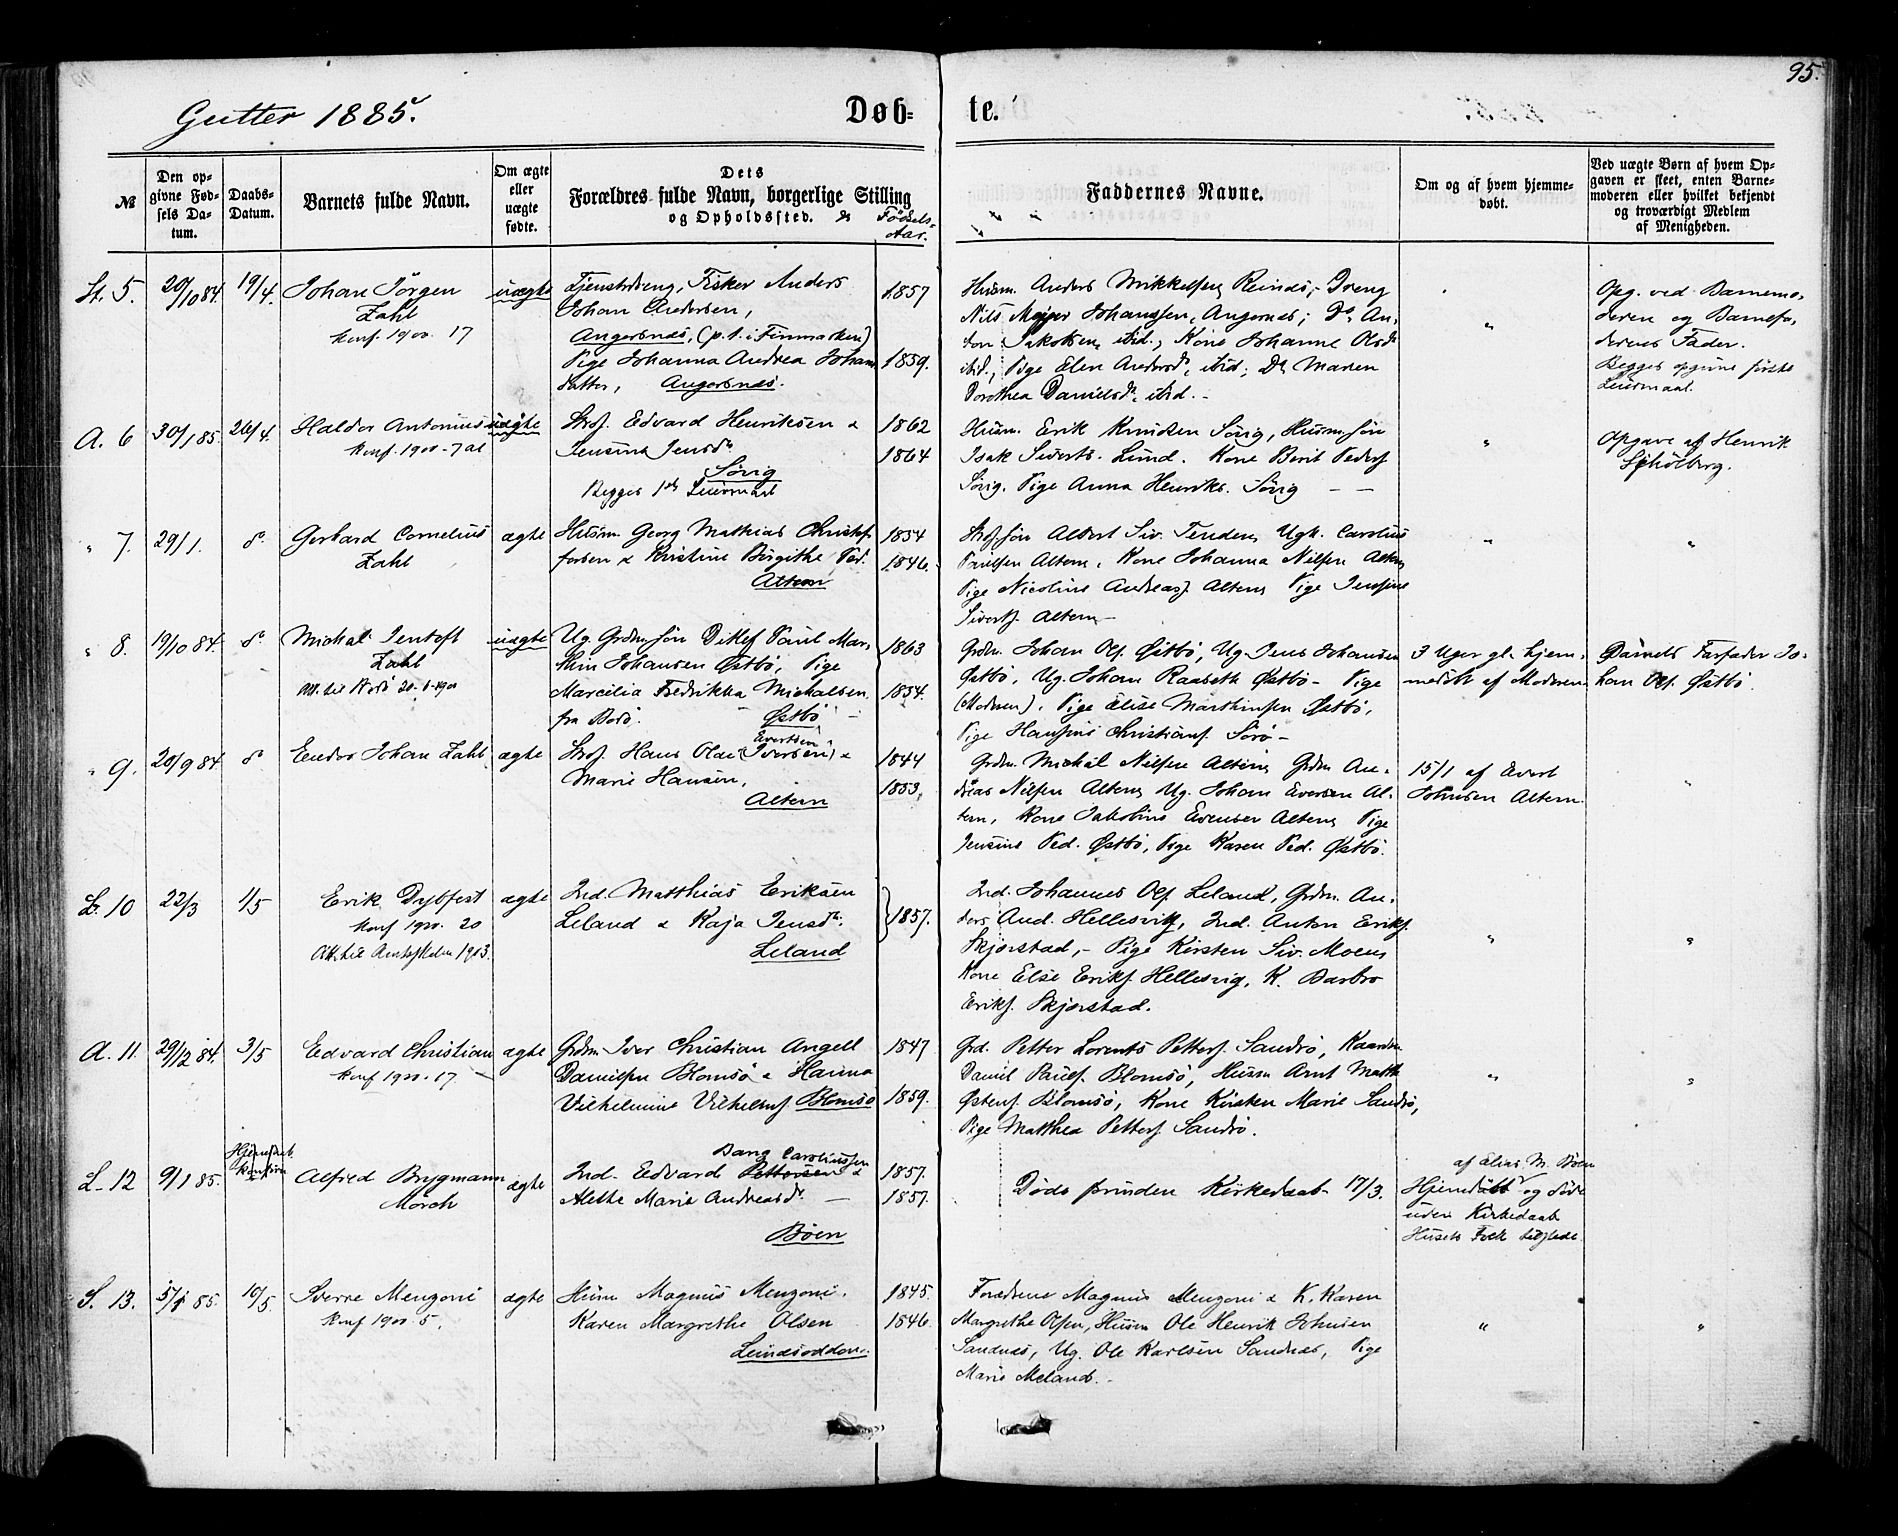 95.
Gutter 1885.
Døb-
te.
№
Den op-
givne Fød-
sels Da-
tum.
Daabs-
Datum.
Barnets fulde Navn.
Om ægte
eller
uægte
fødte.
Dets
Forældres fulde Navn, borgerlige Stilling
og Opholdssted.
Fødsels
Aar.
Faddernes Navne.
Om og af hvem hjemme-
døbt.
Ved uægte Børn af hvem Op-
gaven er skeet, enten Barne-
moderen eller hvilket bekjendt
og troværdigt Medlem
af Menigheden.
St. 5. 20/10 84. 19/4. Johan Jörgen
Zahl
Konf. 1900. 17
uægte
Tjenstdreng, Fisker Anders
Johan Andersen,
Angersnes, (p.t. i Finmarken)
Pige Johanna Andrea Johans
datter, Angersnes.
1857
1859.
Husm. Anders Mikkelsen Reinös, Dreng
Nils Mejer Johanssen, Angernes; Do An-
ton Jakobsen, ibid., Kone Johanne Olsdr
ibid., Pige Elen Andersdr, ibid; Do Maren
Dorothea Danielsdr, ibid. -
"
Opg. ved Barnemo-
deren og Barnefa-
derens Fader.
Begges opgivne förste
Leiermaal.
A. 6 30/1 85. 26/4. Haldor Antonius
Konf. 1900 - 7
uægte
Strf. Edvard Henriksen &
Jensine Jensdr
Sövig
Begges 1ste Leiermaal
1862
1864
Husm. Erik Knudsen Sövig, Husm.sön
Isak Siverts. Lund. Kone Berit Peders
Sövig. Pige Anna Henriks. Sövig — —
"
Opgave af Henrik
Sjhölberg.
" 7. 29/1. do Gerhard Cornelius
Zahl
ægte
Husm. Georg Mathias Christof
fersen & Kristine Birgithe Ped.
Altern
1854
1846.
Strf.sön Albert Siv. Tenden, Ugk. Carolius
Paulsen Altern, Kone Johanna Nilsen Altern
Pige Nicoline Andreas. Altern, Pige Jensine
Siverts. Altern -
"
"
" 8. 19/10 84. do Mikal Jentoft
Zahl
Att. til Bodö 20-6-1900
uægte
Ug. Grdm.sön Ditlef Paul Mar-
thin Johansen Østbö, Pige
Marcelia Fredrikka Michalsen
fra Bodö. Østbö
1863
1854.
Grdm. Johan Ols. Østbö, Ug. Jens Johansen
Østbö, Ug. Johan Raabeth Østbö - Pige
(Moderen), Pige Elise Marthinsen Østbö,
Pige Hansine Christians. Sörö -
3 Uger gl. hjem-
medöbt af Moderen
Barnets Farfader Jo-
han Ols. Østbö.
" 9. 20/9 84 do Eendor Johan Zahl ægte
Strf. Hans Olai (Iversen) &
Evertsen
Marie Hansen,
Altern
1844
1853,
Grdm. Mikal Nilsen Altern, Grdm An-
dreas Nilsen Altern, Ug. Johan Eversen Al-
tern, Kone Jakobine Evensen Altern, Pige
Jensine Ped. Østbö, Pige Karen Ped. Østbö.
15/1 af Evert
Johnsen Altern.
"
L. 10 22/3 1/5 Erik Dybfest
Konf 1900. 20
Att. til 1903.
ægte
Ind. Matthias Eriksen
Leland & Kaja Jensdr.
Leland
1857.
Ind. Johannes Ols. Leland, Grdm. An-
ders And. Hellesvik, Ind. Anton Eriks.
Skjerstad, - Pige Kirsten Siv. Moen,
Kone Else Eriks. Hellesvig, K. Barbro
Eriks. Skjerstad.
"
"
A. 11. 29/12 84. 3/5 Edvard Christian
Konf 1900. 17
ægte
Grdm Iver Christian Angell
Danielsen Blomsö & Hanna
Vilhelmine Vilhelms. Blomsö
1847
1859.
Grd. Petter Lorents Petters. Sandö, Kaarm.
Daniel Pauls. Blomsö, Husm Arnt Matth
Østens. Blomsö, Kone Kirsten Marie Sandö,
Pige Matthea Petters. Sandö.
"
"
L. 12 9/1 85. Hjemdaab
Alfred Brygmann
Mörch
ægte
Bang Caroliussen
Ind. Edvard Pettersen &
Alethe Marie Andreasdr. —
Böen
1857.
1857.
Döde forinden Kirkedaab 17/3.
af Elias M. Böen
Hjemdöbt og döde
uden Kirkedaab
Husets Folk tilstede.
S. 13. 5/1 85. 10/5. Sverre Mengoni
Konf 1900. 5.
ægte
Husm Magnus Mengoni.
Karen Margrethe Olsen
Leinesodden.
1845.
1846.
Forældrene Magnus Mengoni & K. Karen
Margrethe Olsen, Husm Ole Henrik Johnsen
Sandnes, Ug. Ole Karlsen Sandnes, Pige
Marie Meland. -
"
"